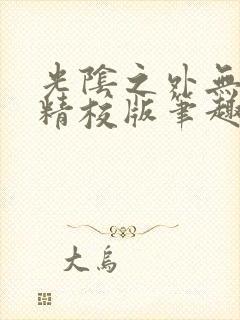 光陰之外無
精校版筆趣
大烏